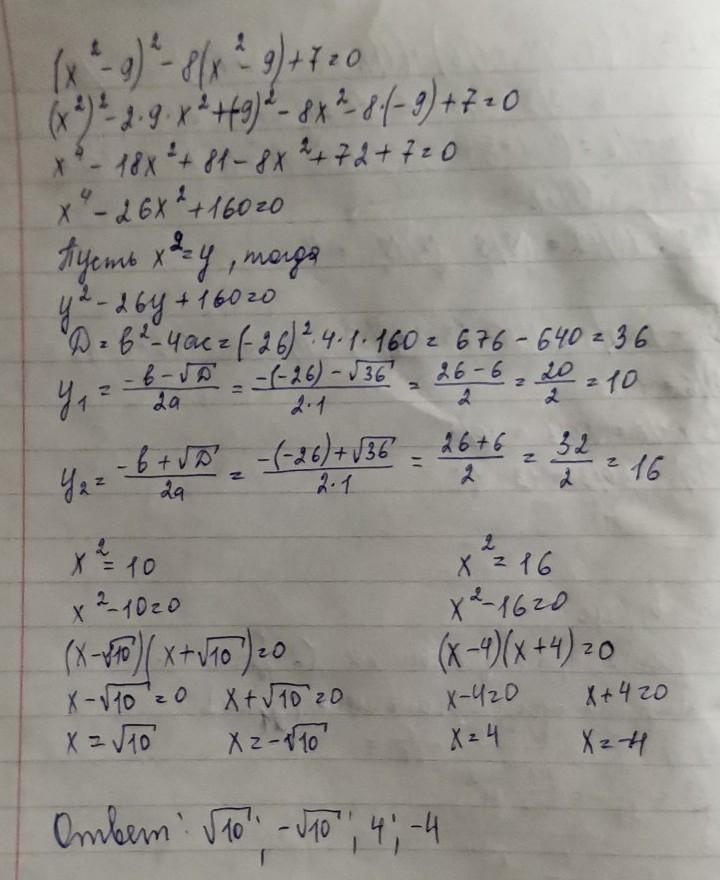 (x²-9)²-8(x²-9)+7=0
(x²)²-2·9·x²+(-9)²-8x²-8·(-9)+7=0
x⁴-18x²+81-8x²+72+7=0
x⁴-26x²+160=0
Пусть x²=y, тогда
y²-26y+160=0
D=b²-4ac=(-26)²·4·1·160=676-640=36
y₁=(-b-√D)/2a=(-(-26)-√36)/2·1=(26-6)/2=20/2=10
y₂=(-b+√D)/2a=(-(-26)+√36)/2·1=(26+6)/2=32/2=16
x²=10 x²=16
x²-10=0 x²-16=0
(x-√10)(x+√10)=0 (x-4)(x+4)=0
x-√10=0 x+√10=0 x-4=0 x+4=0
x=√10 x=-√10 x=4 x=-4
Ответ: √10; -√10; 4; -4